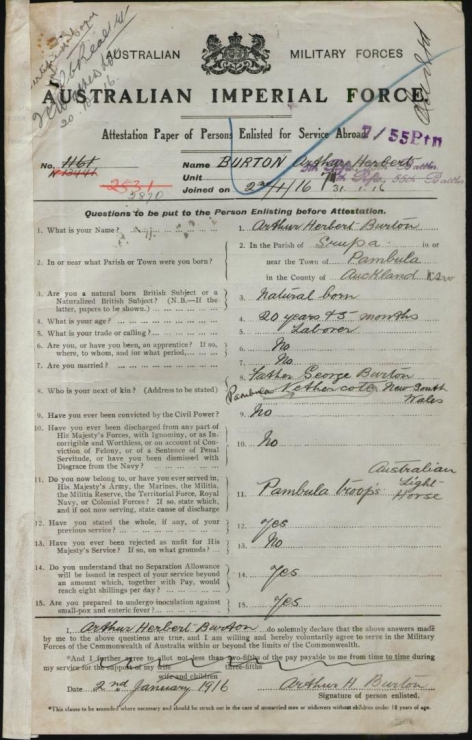 AUSTRALIAN MILITARY FORCES
AUSTRALIAN IMPERIAL FORCE
Attestation Paper of Persons Enlisted for Service Abroad
7/55 Ptn
No. Name BURTON Arthur Herbert
Unit 55th Battn.
Joined on 1 16
Questions to be put to the Person Enlisting before Attestation.
1. What is your Name? 1. Arthur Herbert Burton
2. In or near what Parish or Town were you born? 2. In the Parish of in or
near the Town of Pambula
in the County of Auckland NSW
3. Are you a natural born British Subject? or a
Naturalized British Subject? (N.B.—If the
latter, papers to be shown.) 3. Natural born
4. What is your age? 4. 20 years & 5 months
5. What is your trade or calling? 5. Laborer
6. Are you, or have you been, an apprentice? If so,
where, to whom, and for what period, 6. No
7. Are you married? 7. No
8. Who is your next of kin? (Address to be stated) 8. Father George Burton
Pambula Nethercote New South
Wales
9. Have you ever been convicted by the Civil Power? 9. No
10. Have you ever been discharged from any part of
His Majesty's Forces, with Ignominy, or as In-
corrigible and Worthless, or on account of Con-
viction of Felony, or of a Sentence of Penal
Servitude, or have you been dismissed with
Disgrace from the Navy? 10. No
11. Do you now belong to, or have you ever served in,
His Majesty's Army, the Marines, the Militia,
the Militia Reserve, the Territorial Force, Royal
Navy, or Colonial Forces? If so, state which,
and if not now serving, state cause of discharge 11. Pambula troops Australian Light Horse
12. Have you stated the whole, if any, of your
previous service? 12. Yes
13. Have you ever been rejected as unfit for His
Majesty's Service? If so, on what grounds? 13. No
14. Do you understand that no Separation Allowance
will be issued in respect of your service beyond
an amount which, together with Pay, would
reach eight shillings per day? 14. Yes
15. Are you prepared to undergo inoculation against
small-pox and enteric fever? 15. Yes
I, Arthur Herbert Burton do solemnly declare that the above answers made
by me to the above questions are true, and I am willing and hereby voluntarily agree to serve in the Military
Forces of the Commonwealth of Australia within or beyond the limits of the Commonwealth.
*And I further agree to allot not less than two-fifths of the pay payable to me from time to time during
three-fifths
my service for the support of my wife
wife and children
Date 2nd January 1916 Arthur H Burton
Signature of person enlisted.
*This clause to be amended where necessary and should be struck out in the case of unmarried men or widowers without children under 18 years of age.